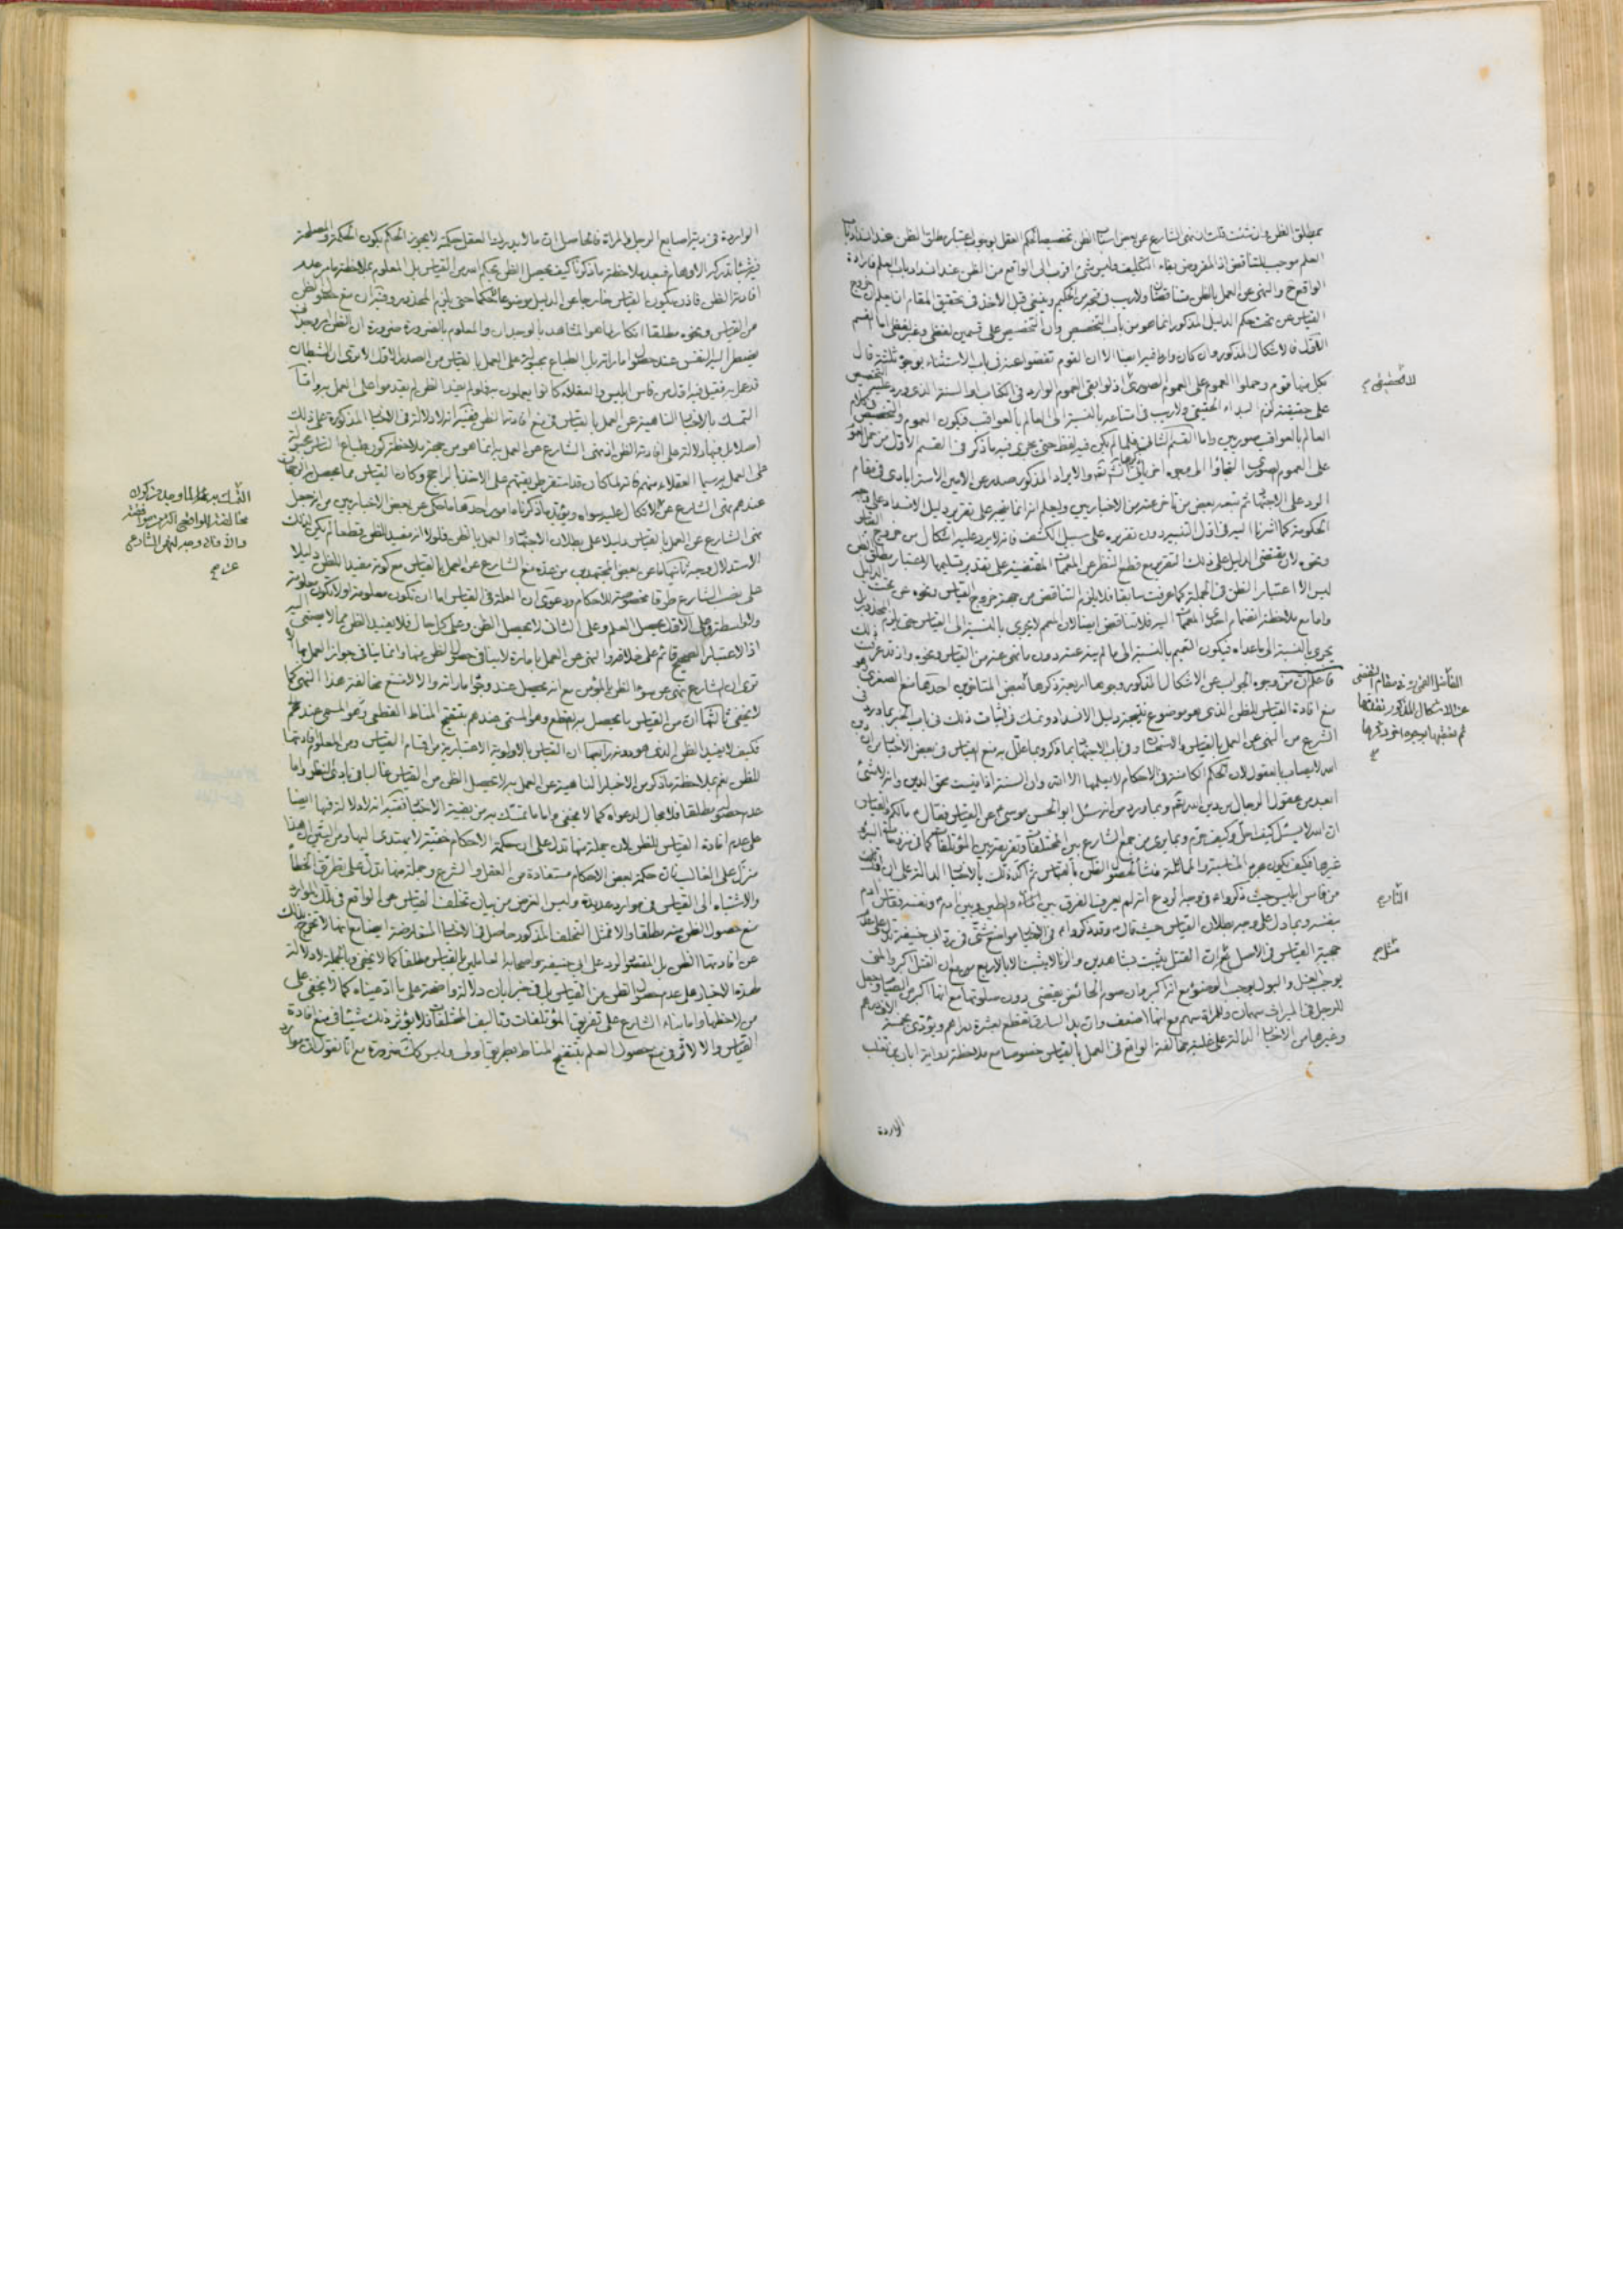 بمطلق الظن وان شئت قلت ان نهى الشارع عن بعض اسباب الظن تخصيص لحكم العقل بوجوب اعتبار مطلق الظن عند انسداد باب
العلم موجب للتناقض اذ المفروض بقاء التكليف وليس شئ اقرب الى الواقع من الظن عند انسداد باب العلم فارادة
الواقع ح والنهى عن العمل بالظن متناقضان ولا ريب فى من الحكيم وينبغى قبل الاخذ فى تحقيق المقام ان يعلم ان خروج
القياس عن تحت حكم الدليل المذكور انما هو من باب التخصيص وان التخصيص على قسمين لفظى وغير لفظى اما القسم
الاول فالاشكال المذكور وان كان واردا فيه ايضا الا ان القوم تفصوا عنه فى باب الاستثناء بوجوه ثلثة قال
بكل منها قوم وحملوا العموم على العموم الصورى اذ لو ابقى العموم الوارد فى الكتاب او السنة الذى ورد عليه التخصيص
على حقيقته لزم البداء الحقيقى ولا ريب فى امتناعه بالنسبة الى العالم بالعواقب فيكون العموم والتخصيص فى كلام
العالم بالعواقب صوريين واما القسم الثانى فلما لم يكن فيه لفظ حتى يجرى فيه ما ذكر فى القسم الاول من حمل العموم
على العموم الصورى والايراد المذكور صدر عن الامين الاسترابادى فى مقام
الرد على الاجتهاد ثم تبعه بعض من تاخر عنه من الاخباريين وليعلم انه انما يتجه على تقرير دليل الانسداد على وجه
الحكومة كما اشرنا اليه فى اول التنبيه دون تقريره على سبيل الكشف فانه لا يرد عليه اشكال من خروج القياس
ونحوه لان مقتضى الدليل على ذلك التقرير مع قطع النظر عن المقدمات المقتضية على تقدير تسليمها لاعتبار مطلق الظن
ليس الا اعتبار الظن فى الجملة كما عرفت سابقا فلا يلزم التناقض من جهة خروج القياس ونحوه عن تحت الدليل
واما مع ملاحظة انضمام احدى المقدمات اليه فلا تناقض ايضا لان المعمم لا يجرى بالنسبة الى القياس حتى يلزم المحذور بل
يجرى بالنسبة الى ما عداه فيكون التعميم بالنسبة الى ما لم ينه عنه دون ما نهى عنه من القياس ونحوه واذ قد عرفت ذلك
فاعلم ان من وجوه الجواب عن الاشكال المذكور وجوها اربعة ذكرها بعض المتاخرين احدها منع الصغرى وهو
منع افادة القياس للظن الذى هو موضوع نتيجة دليل الانسداد وتمسك فى اثبات ذلك فى باب الخبر بما ورد فى
الشرع من النهى عن العمل بالقياس والاستحسان وفى باب الاجتهاد بما ذكر وبما علل به منع القياس فى بعض الاخبار من ان دين
الله لا يصاب بالعقول لان الحكم الكامنة فى الاحكام لا يعلمها الا الله وان السنة اذا قيست محق الدين وانه لا شئ
ابعد من عقول الرجال من دين الله تعالى وبما ورد من انه سئل ابو الحسن موسى ع عن القياس فقال ع ما لكم والقياس
ان الله لا يسئل كيف احل وكيف حرم وبما يرى من جمع الشارع بين المختلفات وتفريقه بين المؤتلفات كما فى نزح البئر
غيرها فكيف يكون مجرد المناسبة والمماثلة منشأ لحصول الظن بالقياس ثم اكد ذلك بالاخبار الدالة على ان اول
من قاس ابليس حيث ذكروا ع فى وجه الردع التزام يعرفنا الفرق بين النار والطين وبين ادم ع ونفسه فقاس ادم
بنفسه وبما دل على وجه بطلان القياس حيث قال وقد ذكروا ع فى الاخبار مواضع شتى فى رد ابى حنيفة تدل على عدم
حجية القياس فى الاصل ان القتل يثبت بشاهدين والزنا لا يثبت الا بالاربع مع ان القتل اكبر والمنى
يوجب الغسل والبول يوجب الوضوء مع انه اكبر وان صوم الحائض يقضى دون صلوتها مع انها اكبر من الصيام وجعل
للرجل فى الميراث سهمان وللمراة سهم مع انها اضعف وان يد السارق تقطع بعشرة دراهم ويؤدى بخمسة الاف درهم
وغيرها من الاخبار الدالة على غلبة مخالفة الواقع فى العمل بالقياس خصوصا مع ملاحظة رواية ابان بن تغلب
الواردة
لا الحقيقى صح
الفاضل القمى ره فى مقام التفصى
عن الاشكال المذكور نقلها
ثم نعقبها بوجوه اخر ذكرها
صح
الثارع
مثل صح
الواردة فى دية اصابع الرجل والمراة فالحاصل ان ما لا يدرك العقل حكمته لا يجوز الحكم بكون الحكمة والمصلحة
فيه شيئا تدركه الاوهام فبعد ملاحظة ما ذكرنا كيف يحصل الظن بحكم الله من القياس بل المعلوم بملاحظة ما مر عدم
افادته الظن فاذن يكون القياس خارجا عن الدليل موضوعا لا حكما حتى يلزم المحذور وفيه ان منع حصول الظن
من القياس ونحوه مطلقا انكار لما هو المشاهد بالوجدان والمعلوم بالضرورة ضرورة ان الظن امر وجدانى
يضطر اليه النفس عند حصول اماراته بل الطباع مجبولة على العمل بالقياس من الصدر الاول الا ترى ان الشيطان
قد عمل به فقيل فيه اول من قاس ابليس والعقلاء كانوا يعملون به فلو لم يفد الظن لم يقدموا على العمل به واما
التمسك بالاخبار الناهية عن العمل بالقياس فى منع افادته الظن ففيه انه لا دلالة فى الاخبار المذكورة على ذلك
اصلا بل فيها دلالة على افادته الظن اذ نهى الشارع عن العمل به انما هو من جهة ملاحظة كون طباع الناس مجبولة
على العمل به سيما العقلاء منهم فانه لما كان قد استقر طريقتهم على الاخذ بالراجح وكان القياس مما يحصل به الرجحان
عندهم نهى الشارع عن الاتكال عليه سواه ويؤيد ما ذكرناه امور احدها ما حكى عن بعض الاخباريين من انه جعل
نهى الشارع عن العمل بالقياس دليلا على بطلان الاجتهاد والعمل بالظن فلولا انه مفيد للظن قطعا لم يكن لذلك
الاستدلال وجه ثانيها ما عن بعض المجتهدين من عده منع الشارع عن العمل بالقياس مع كونه مفيدا للظن دليلا
على نصب الشارع طرقا مخصوصة للاحكام ودعوى ان العلة فى القياس اما ان تكون معلومة او لا تكون معلومة
ولا واسطة وعلى الاول يحصل العلم وعلى الثانى لا يحصل الظن وعلى كل حال فلا يفيد الظن مما لا يصغى اليه
اذ الاعتبار الصحيح قائم على خلافه والنهى عن العمل بامارة لا ينافى حصول الظن منها وانما ينافى جواز العمل بها الا
ترى ان الشارع نهى عن سوء الظن بالمؤمن مع انه يحصل عند وجود اماراته والا لامتنع مخالفة هذا النهى كما
لا يخفى ثالثها ان من القياس ما يحصل به القطع وهو المسمى عندهم بتنقيح المناط القطعى وهو المسمى عندهم
فكيف لا يفيد الظن الذى هو دونه رابعها ان القياس بالاولوية الاعتبارية من اقسام القياس ومن المعلوم افادتها
للظن نعم بملاحظة ما ذكر من الاخبار الناهية عن العمل به لا يحصل الظن من القياس غالبا فى بادى النظر واما
عدم حصوله مطلقا فلا مجال لدعواه كما لا يخفى واما ما تمسك به من بقية الاخبار ففيه انه لا دلالة فيها ايضا
على عدم افادة القياس للظن لان جملة منها تدل على ان حكمة الاحكام خفية لا يهتدى اليها ومن البين ان هذا
منزل على الغالب فان حكمة بعض الاحكام مستفادة من العقل والشرع وجملة منها تدل على تطرق الخطأ
والاشتباه الى القياس فى موارد عديدة وليس الغرض من بيان تخلف القياس عن الواقع فى تلك الموارد
منع حصول الظن منه مطلقا والا فمثل التخلف المذكور حاصل فى الاخبار المتعارضة ايضا مع انها لا تخرج بذلك
عن افادتها الظن بل المقصود الرد على ابى حنيفة واصحابه العاملين بالقياس مطلقا كما لا يخفى وبالجملة لا دلالة
لهذه الاخبار على عدم حصول الظن من القياس بل فى خبر ابان دلالة واضحة على ما ادعيناه كما لا يخفى على
من لاحظها واما بناء الشارع على تفريق المؤتلفات وتاليف المختلفات فلا يؤثر ذلك شيئا فى منع افادة
القياس والا لاثر فى منع حصول العلم بتنقيح المناط بطريق اولى وليس كذلك ضرورة مع انا نقول ان موارد
صح